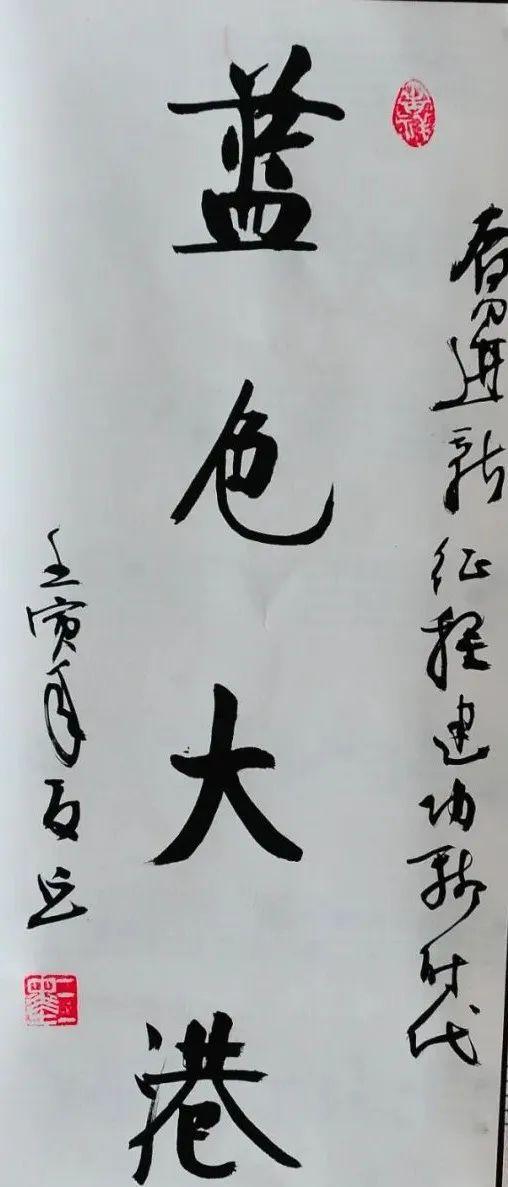 奋勇进新征程建功新时代
蓝色大港
壬寅年夏